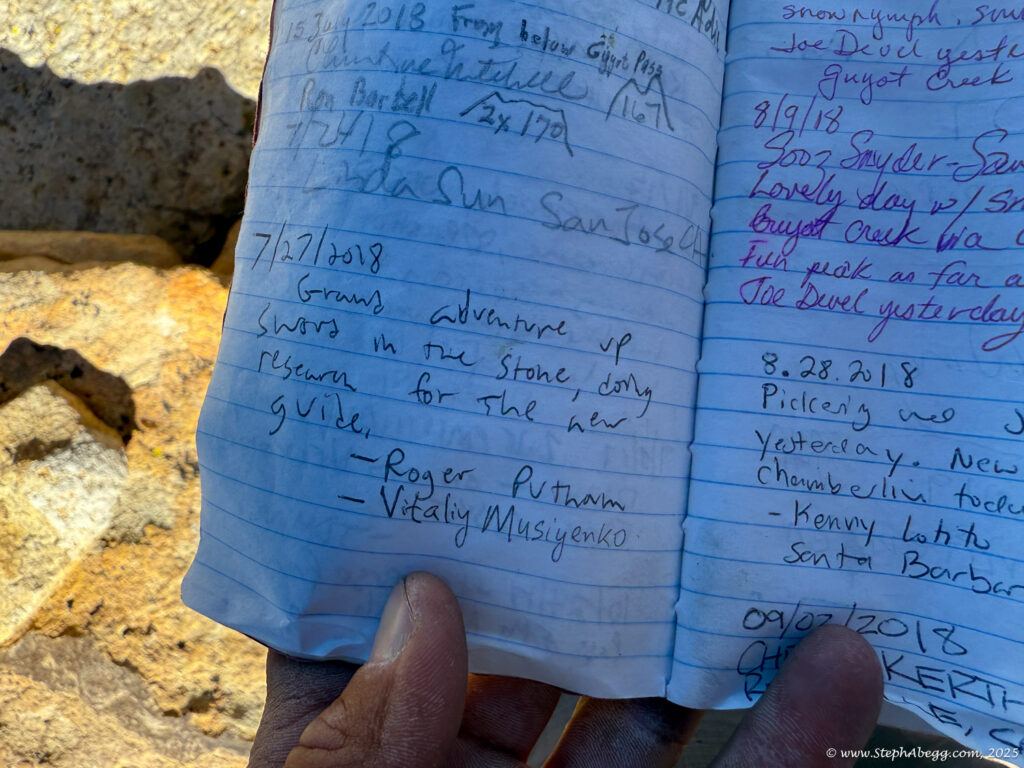 15 July 2018 From below Guyot Pass
Mitchell
Ron Barbell 2x170 167
7/24/18
Linda Sun San Jose CA
7/27/2018
Grand adventure up
Sword in the Stone, doing
research for the new
guide.
- Roger Putnam
- Vitaliy Musiyenko
snow nymph,
Joe Devel yeste
Guyot Creek
8/9/18
Sooz Snyder-San
Lovely day w/ Sn
Guyot Creek via
Fun peak as far a
Joe Devel yesterday
8.28.2018
Pickering and J
Yesterday. New
Chamberlin
- Kenny
Santa Barbar
09/02/2018
KERTH
© www.StephAbegg.com, 2025